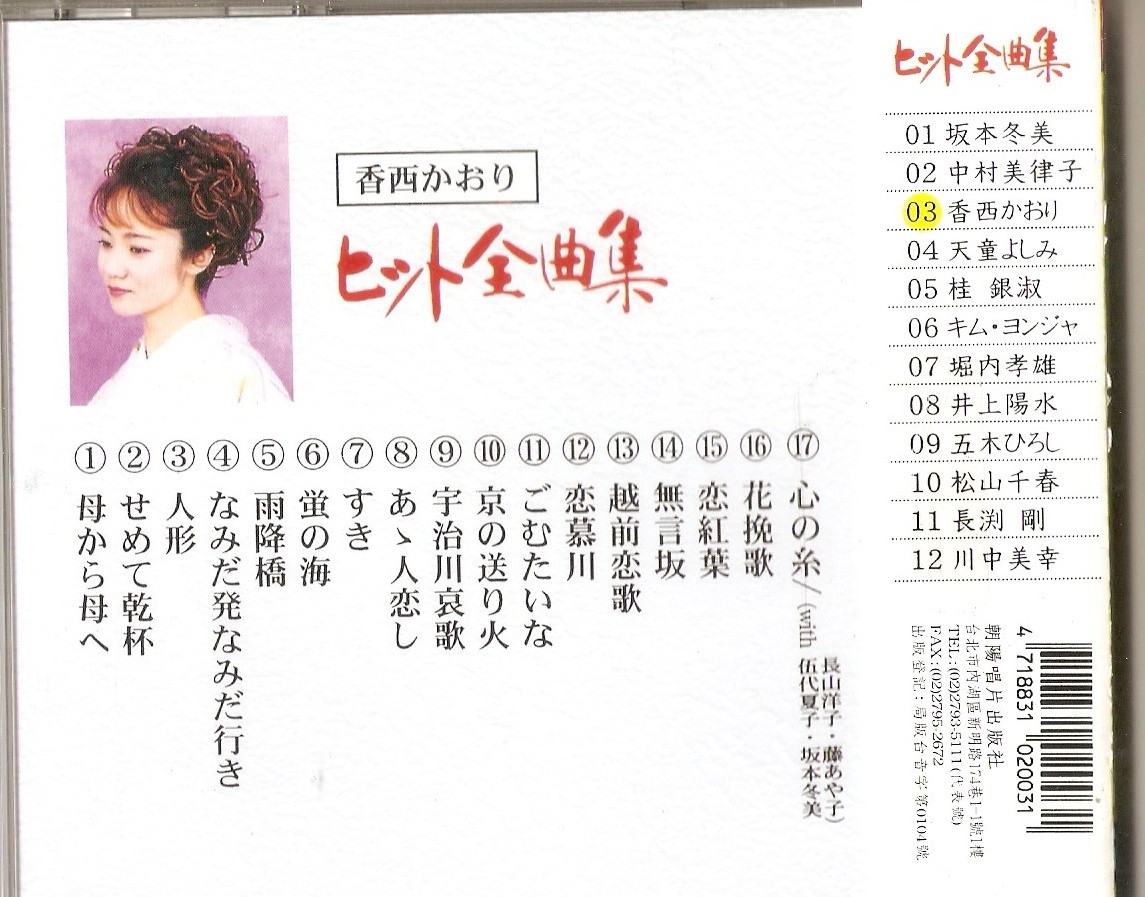 香西かおり
ヒット全曲集
① 母から母へ
② せめて乾杯
③ 人形
④ なみだ発なみだ行き
⑤ 雨降橋
⑥ 蛍の海
⑦ すき
⑧ あゝ人恋し
⑨ 宇治川哀歌
⑩ 京の送り火
⑪ ごむたいな
⑫ 恋慕川
⑬ 越前恋歌
⑭ 無言坂
⑮ 恋紅葉
⑯ 花挽歌
⑰ 心の糸/(with 長山洋子・藤あや子
伍代夏子・坂本冬美)
ヒット全曲集
01 坂本冬美
02 中村美律子
03 香西かおり
04 天童よしみ
05 桂 銀淑
06 キム・ヨンジャ
07 堀内孝雄
08 井上陽水
09 五木ひろし
10 松山千春
11 長渕 剛
12 川中美幸
4 718831 020031
朝陽唱片出版社
台北市內湖區新明路174巷1-1號1樓
TEL:(02)2793-5111(代表號)
FAX:(02)2795-2672
出版登記：局版台音字第0104號